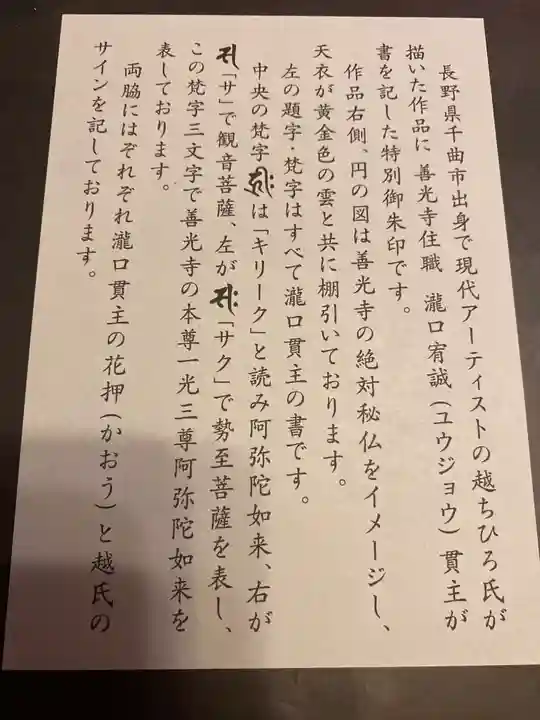 長野県千曲市出身で現代アーティストの越ちひろ氏が
描いた作品に、善光寺住職 瀧口宥誠(ユウジョウ)貫主が
書を記した特別御朱印です。
作品右側、円の図は善光寺の絶対秘仏をイメージし、
天衣が黄金色の雲と共に棚引いております。
左の題字・梵字はすべて瀧口貫主の書です。
中央の梵字 は「キリーク」と読み阿弥陀如来、右が
「サ」で観音菩薩、左が 「サク」で勢至菩薩を表し、
この梵字三文字で善光寺の本尊一光三尊阿弥陀如来を
表しております。
両脇にはぞれぞれ瀧口貫主の花押(かおう)と越氏の
サインを記しております。